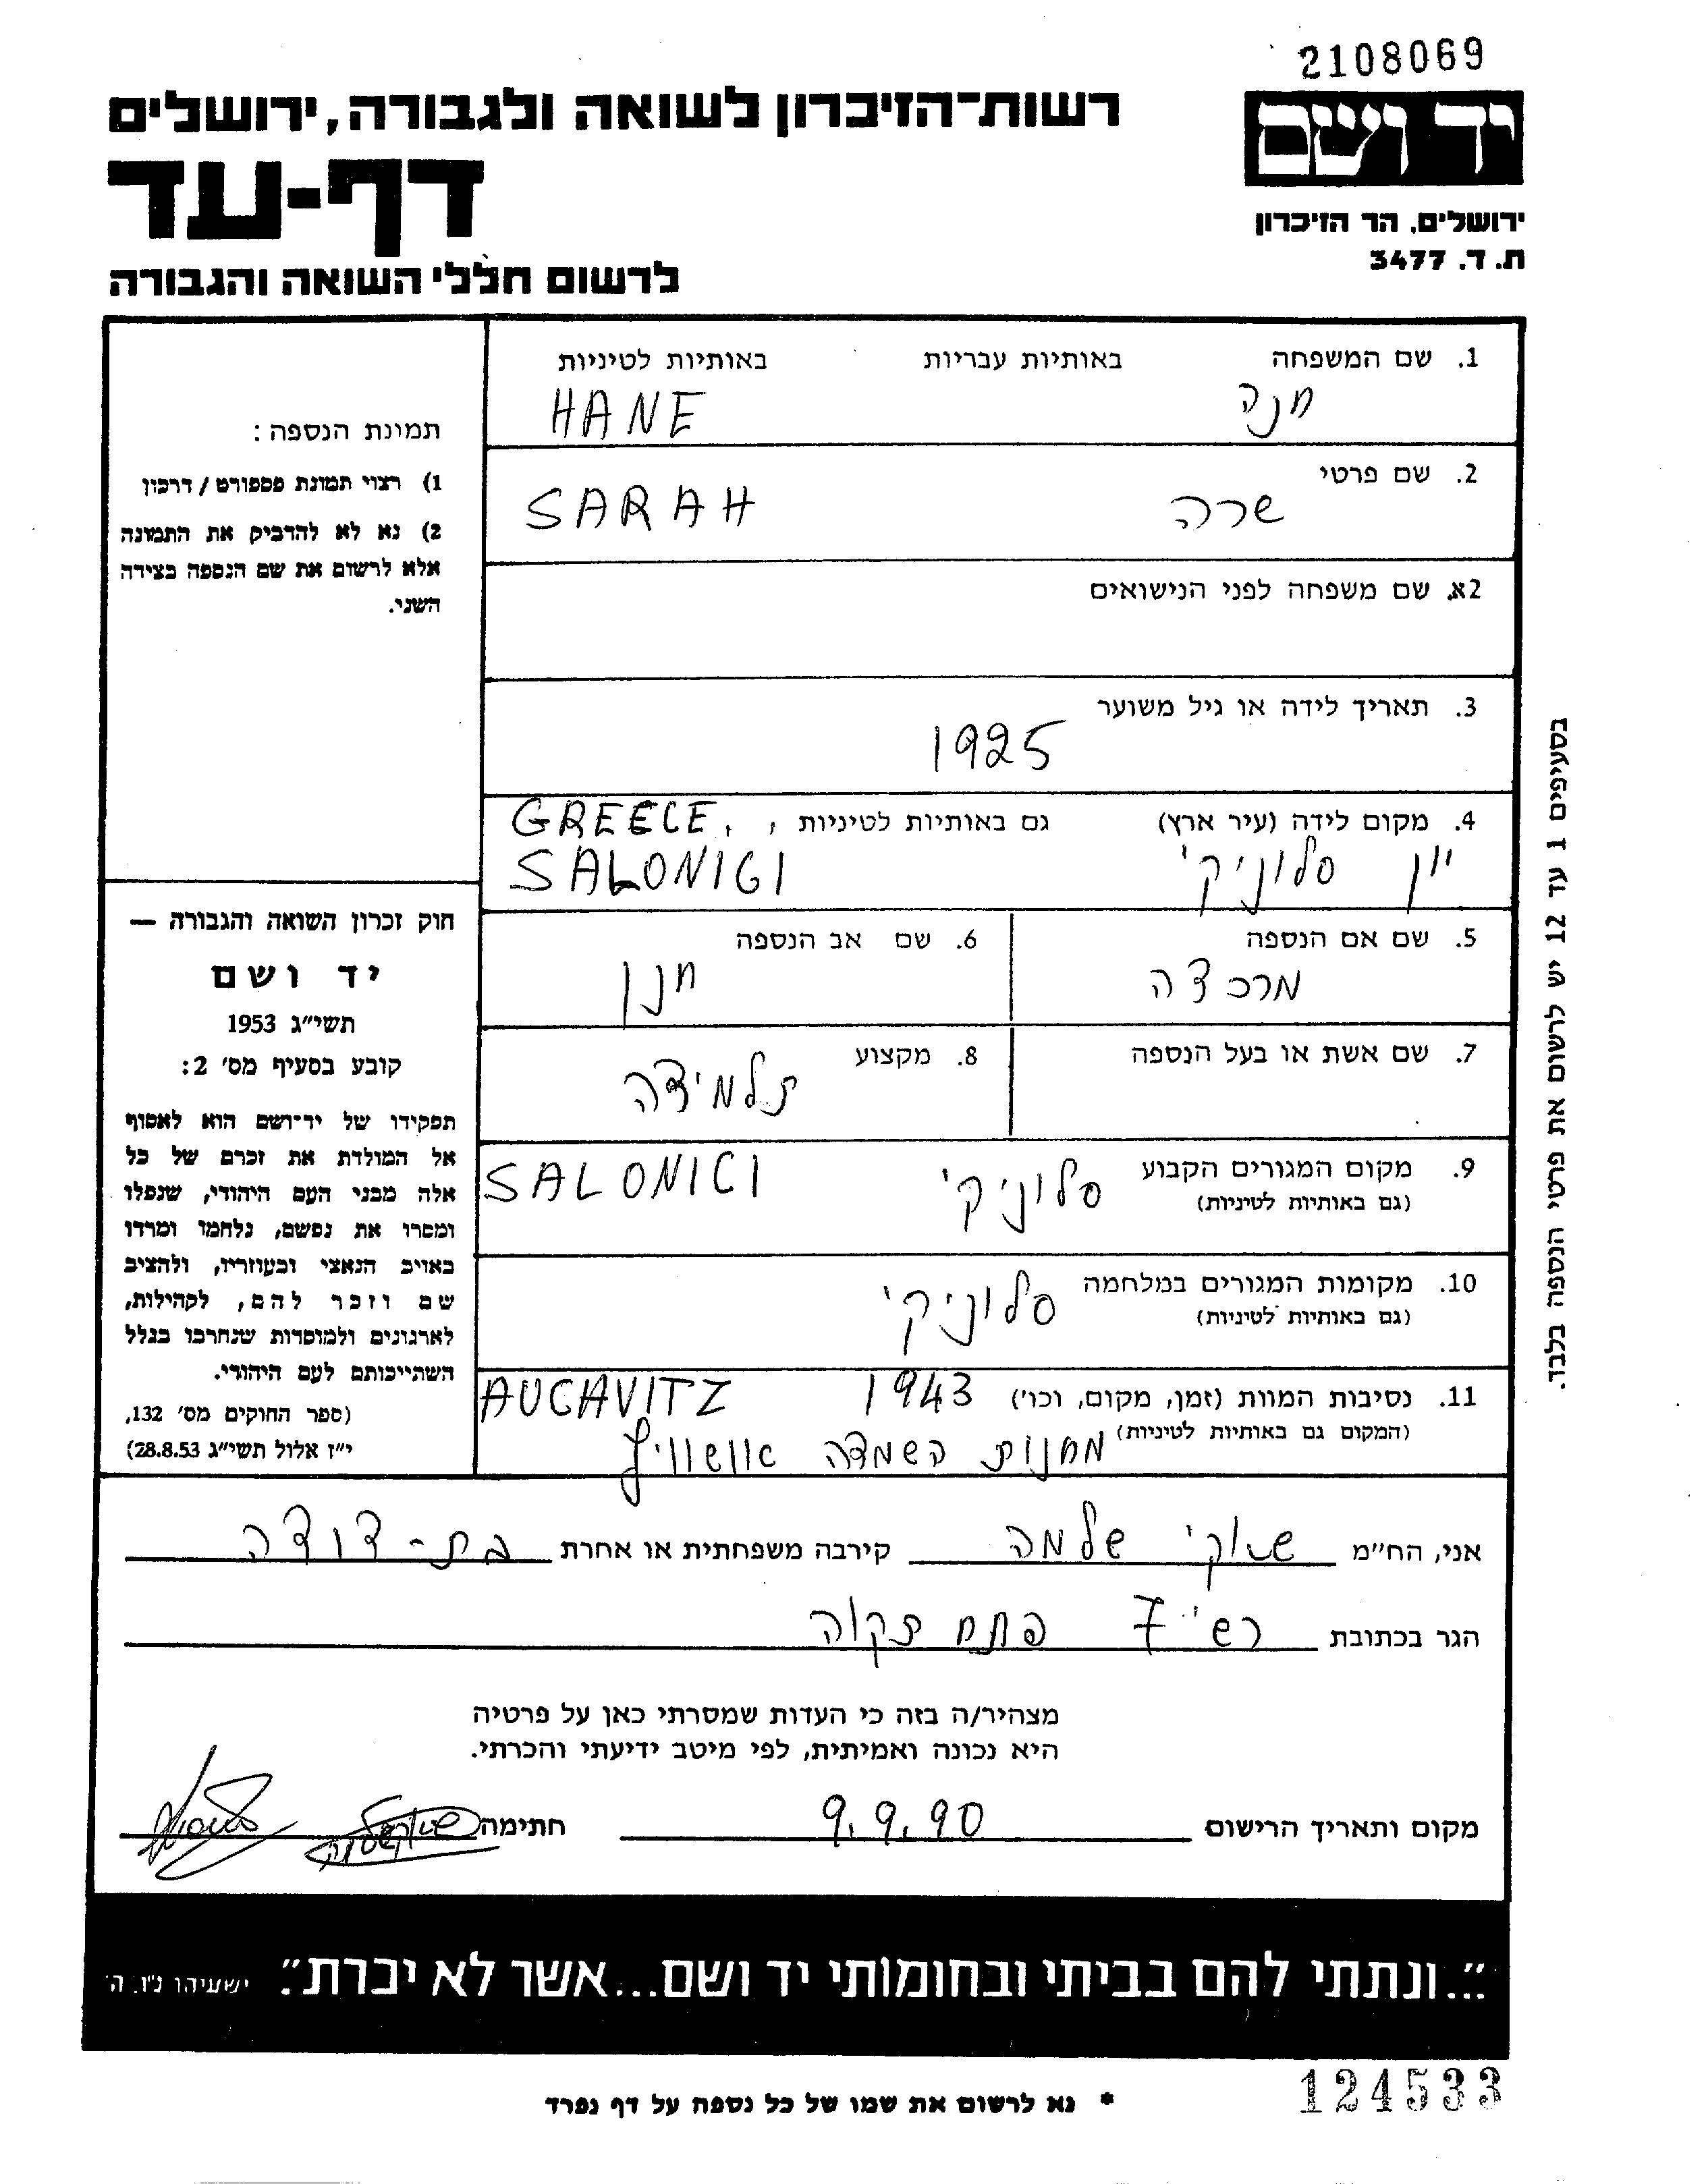 2108069
יד ושם
ירושלים, הר הזיכרון
ת. ד. 3477
רשות-הזיכרון לשואה ולגבורה, ירושלים
דף-עד
לרשום חללי השואה והגבורה
1. שם המשפחה באותיות עבריות באותיות לטיניות
חנה HANE
2. שם פרטי
שרה SARAH
2א. שם משפחה לפני הנישואים
3. תאריך לידה או גיל משוער
1925
4. מקום לידה (עיר ארץ) גם באותיות לטיניות GREECE,
יון סלוניקי SALONIGI
5. שם אם הנספה
מרכדה
6. שם אב הנספה
חנן
7. שם אשת או בעל הנספה
8. מקצוע
תלמידה
9. מקום המגורים הקבוע
(גם באותיות לטיניות)
סלוניקי SALONICI
10. מקומות המגורים במלחמה
(גם באותיות לטיניות)
סלוניקי
11. נסיבות המוות (זמן, מקום, וכו') 1943 AUCAVITZ
(המקום גם באותיות לטיניות)
מחנות השמדה אוושוויץ
תמונת הנספה:
1) רצוי תמונת פספורט / דרכון
2) נא לא להדביק את התמונה
אלא לרשום את שם הנספה בצידה
השני.
חוק זכרון השואה והגבורה —
יד ושם
תשי״ג 1953
קובע בסעיף מס׳ 2:
תפקידו של יד־ושם הוא לאסוף
אל המולדת את זכרם של כל
אלה מבני העם היהודי, שנפלו
ומסרו את נפשם, נלחמו ומרדו
באויב הנאצי ובעוזריו, ולהציב
שם וזכר להם, לקהילות,
לארגונים ולמוסדות שנחרבו בגלל
השתייכותם לעם היהודי.
(ספר החוקים מס׳ 132,
י״ז אלול תשי״ג 28.8.53)
בסעיפים 1 עד 12 יש לרשום את פרטי הנספה בלבד.
אני, הח״מ שאקי שלמה קירבה משפחתית או אחרת בת-דודה
הגר בכתובת רש״י 7 פתח תקוה
מצהיר/ה בזה כי העדות שמסרתי כאן על פרטיה
היא נכונה ואמיתית, לפי מיטב ידיעתי והכרתי.
מקום ותאריך הרישום 9.9.90 חתימה
״...ונתתי להם בביתי ובחומותי יד ושם...אשר לא יכרת״. ישעיהו נ״ו, ה׳
* נא לרשום את שמו של כל נספה על דף נפרד
124533